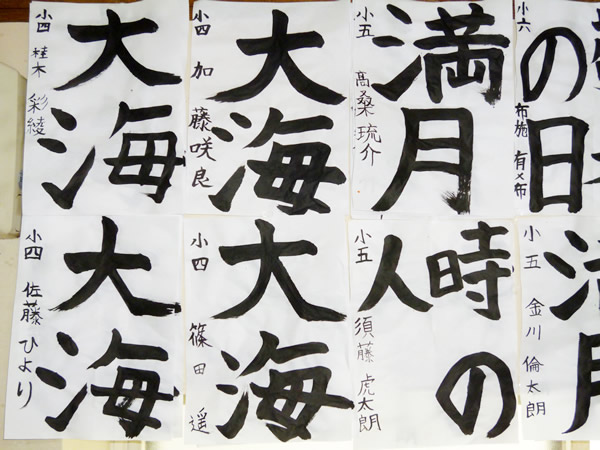 大海
小四 桂木 彩綾
大海
小四 加藤咲良
満月
小五 髙桑琉介
の日
小六 布施 有メ布
大海
小四 佐藤ひより
大海
小四 篠田 遥
時の
人
小五 須藤虎太朗
満月
小五 金川倫太朗